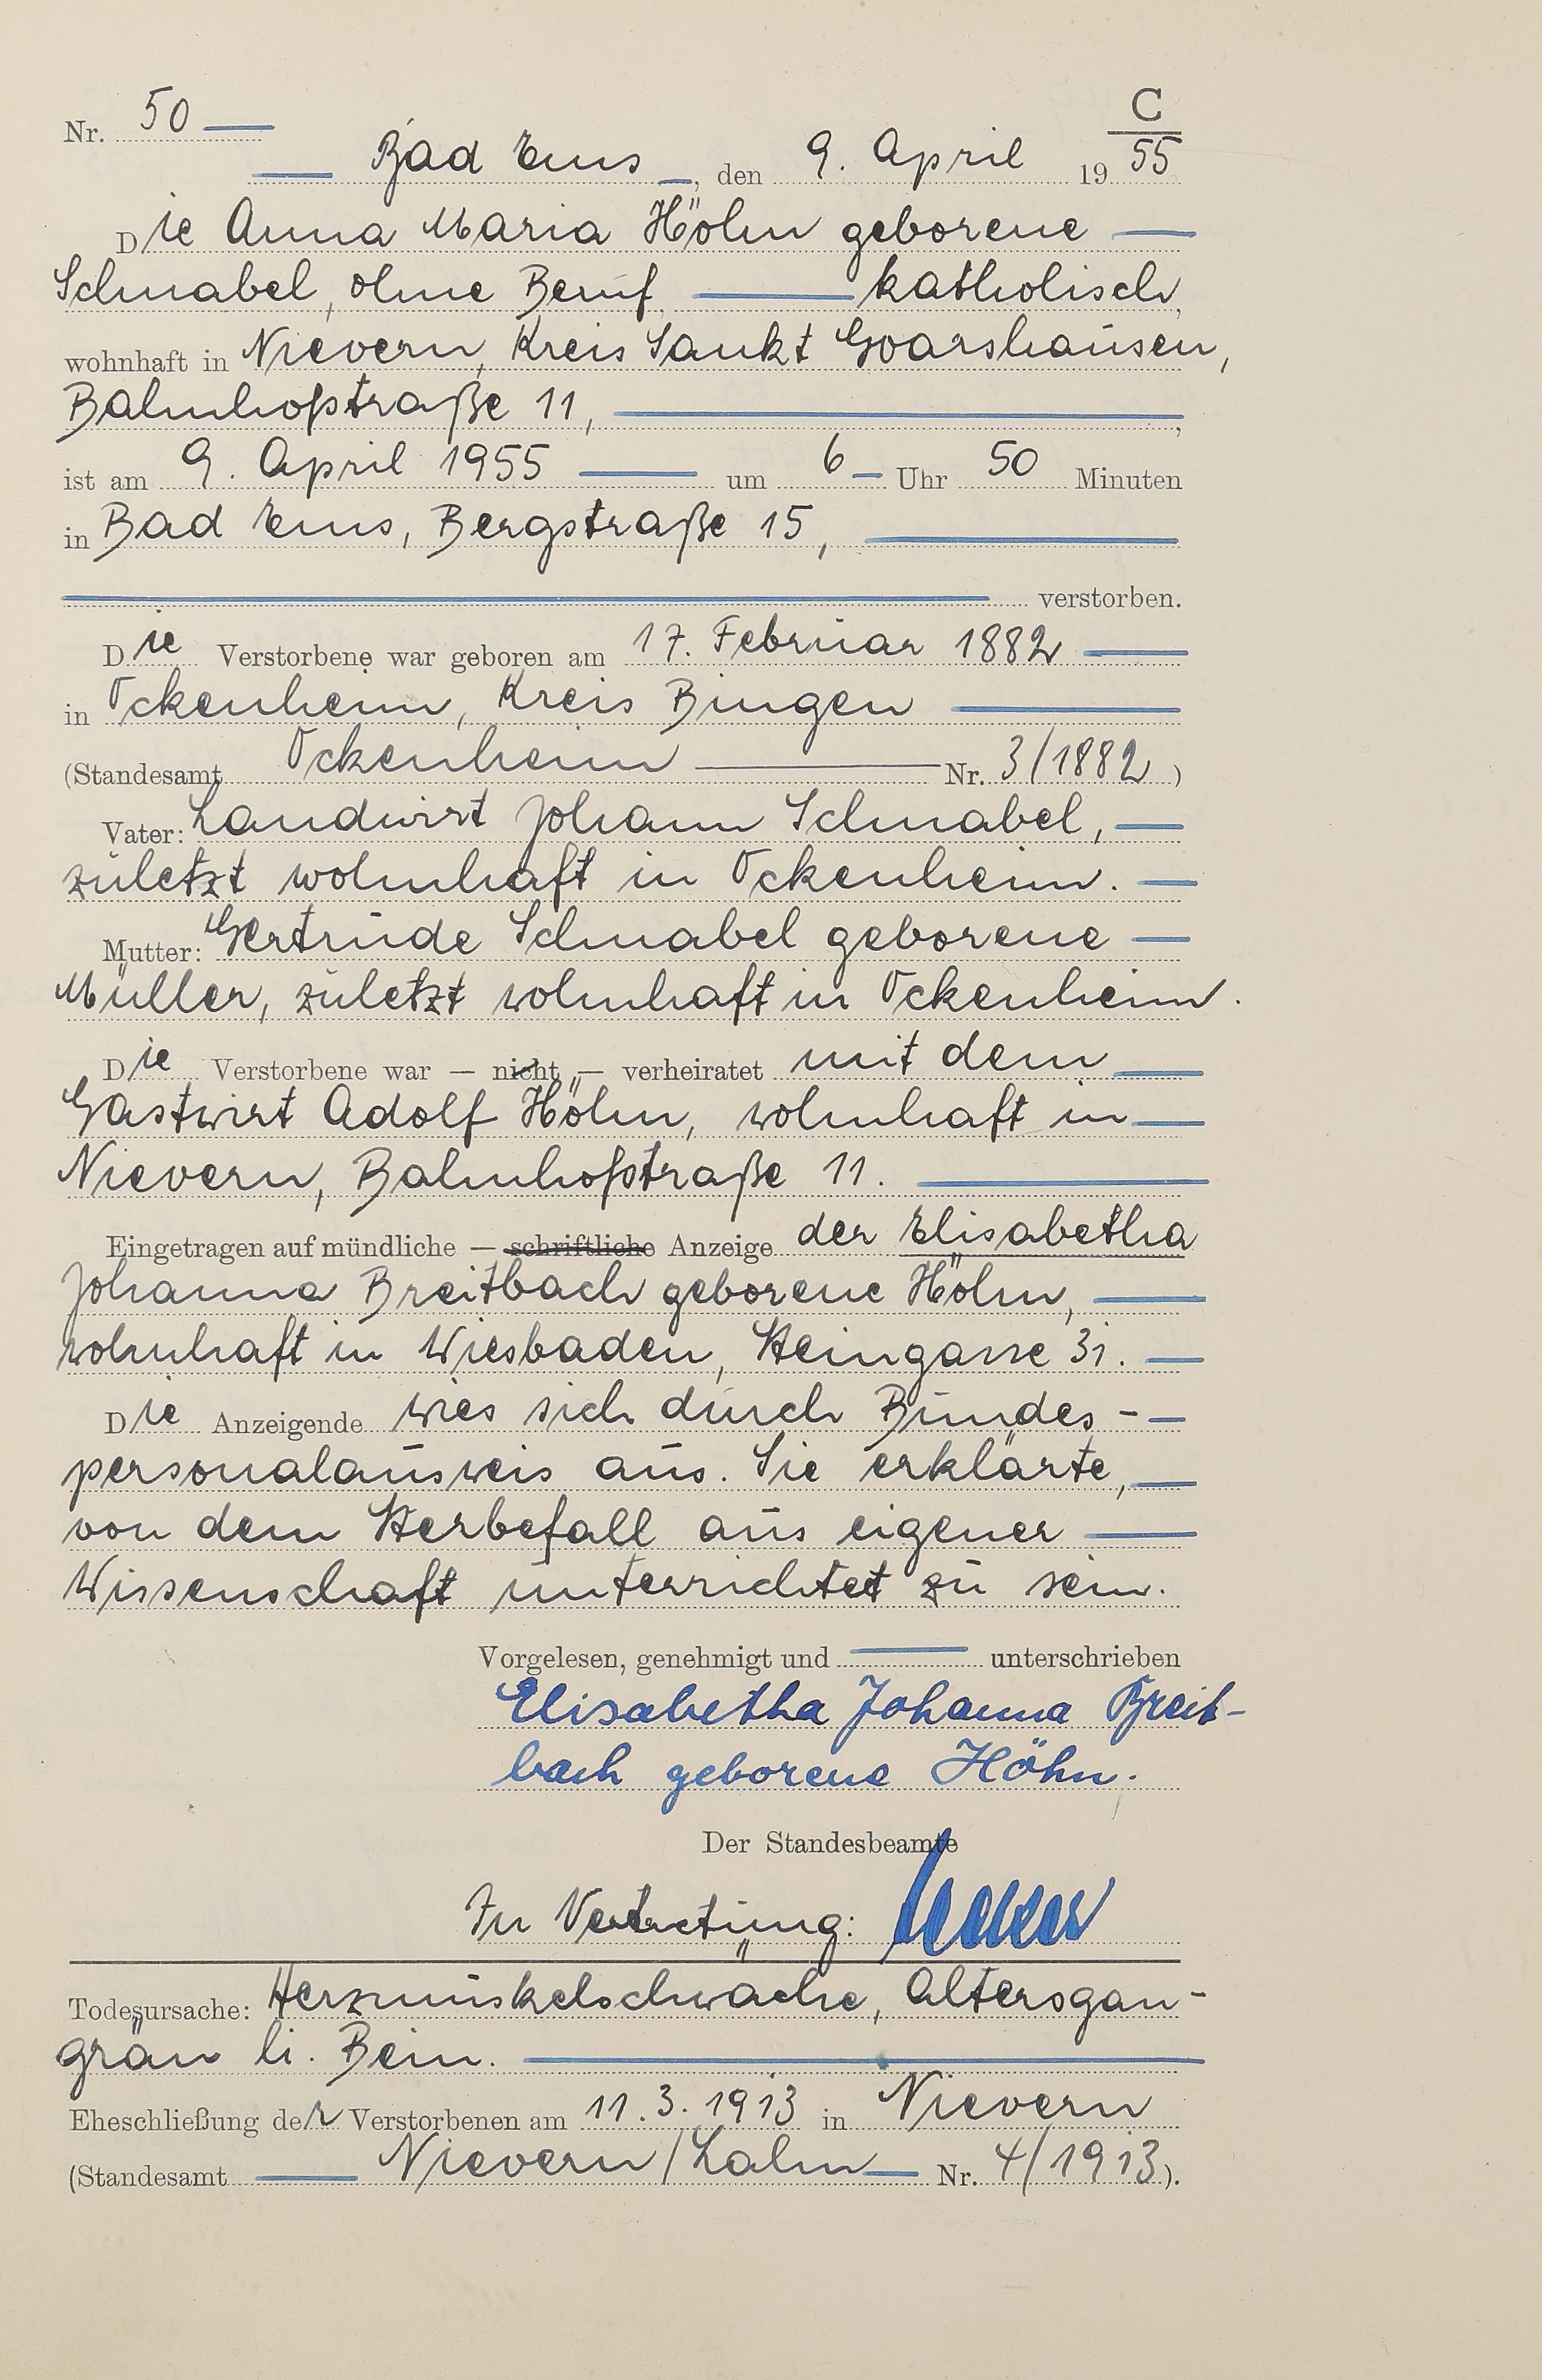 C
Nr. 50
Bad Ems, den 9. April 1955
Die Anna Maria Höhn geborene
Schnabel, ohne Beruf, katholisch,
wohnhaft in Nievern, Kreis Sankt Goarshausen,
Bahnhofstraße 11,
ist am 9. April 1955 um 6 Uhr 50 Minuten
in Bad Ems, Bergstraße 15,
verstorben.
Die Verstorbene war geboren am 17. Februar 1882
in Ockenheim, Kreis Bingen
(Standesamt Ockenheim Nr. 3/1882)
Vater: Landwirt Johann Schnabel,
zuletzt wohnhaft in Ockenheim.
Mutter: Gertrude Schnabel geborene
Müller, zuletzt wohnhaft in Ockenheim.
Die Verstorbene war — nicht — verheiratet mit dem
Gastwirt Adolf Höhn, wohnhaft in
Nievern, Bahnhofstraße 11.
Eingetragen auf mündliche — schriftliche Anzeige der Elisabetha
Johanna Breitbach geborene Höhn,
wohnhaft in Wiesbaden, Steingasse 31.
Die Anzeigende wies sich durch Bundes-
personalausweis aus. Sie erklärte,
von dem Sterbefall aus eigener
Wissenschaft unterrichtet zu sein.
Vorgelesen, genehmigt und unterschrieben
Elisabetha Johanna Breit-
bach geborene Höhn.
Der Standesbeamte
In Vertretung:
Todesursache: Herzmuskelschwäche, Altersgan-
grän li. Bein.
Eheschließung der Verstorbenen am 11.3.1913 in Nievern
(Standesamt Nievern/Lahn Nr. 4/1913).